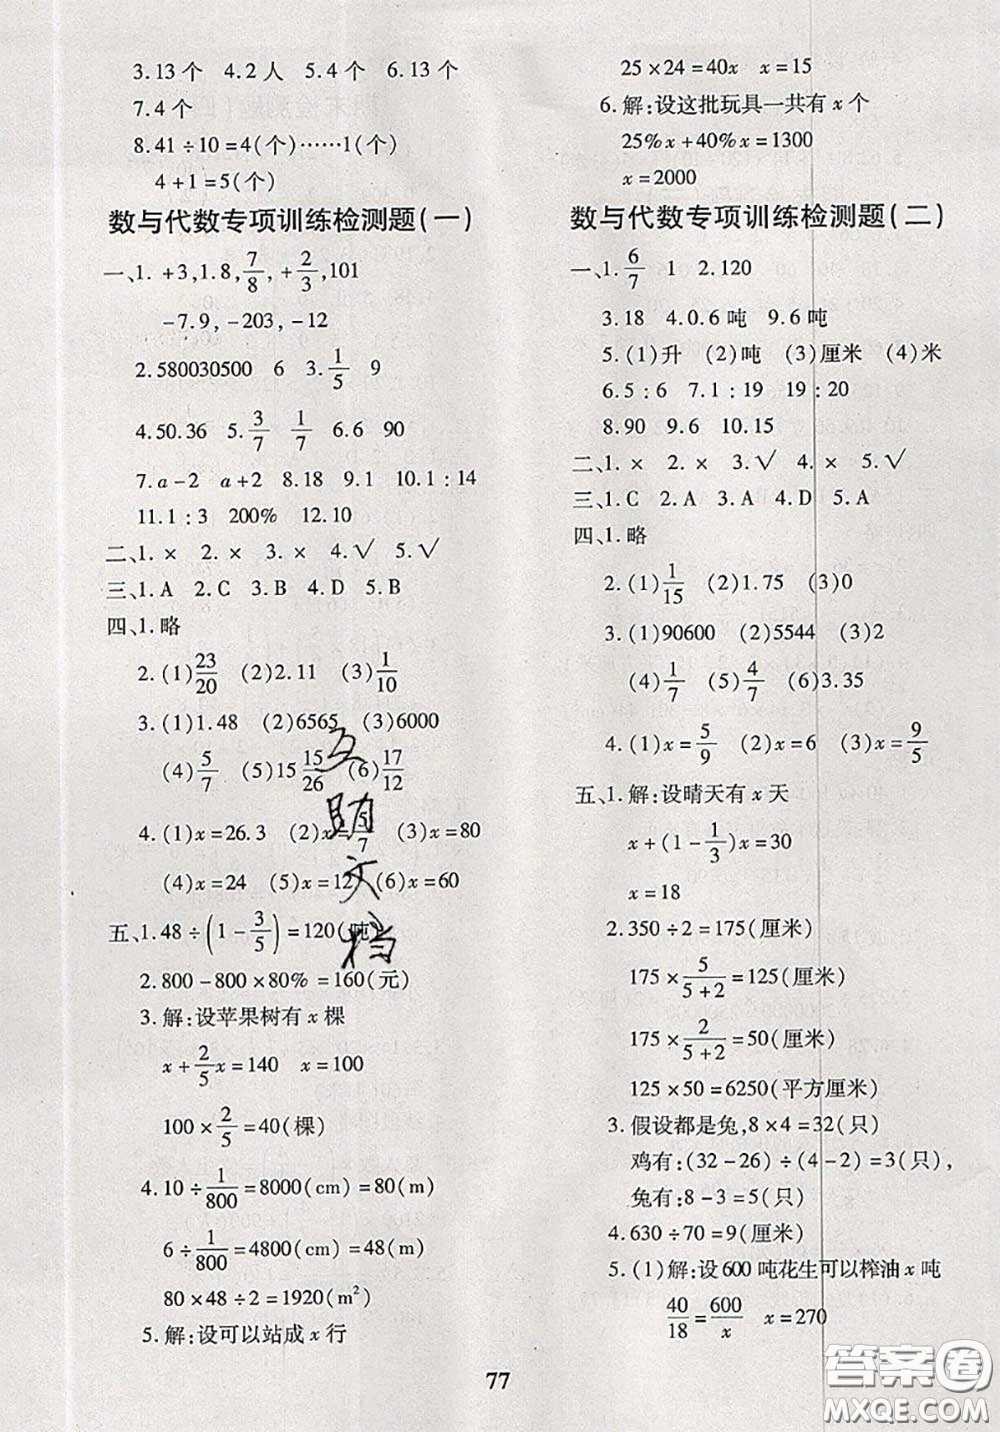 3.13个 4.2人 5.4个 6.13个
7.4个
8.41÷10=4(个)……1(个)
4+1=5(个)
数与代数专项训练检测题(一)
一、1. +3,1.8,7/8,+2/3,101
-7.9,-203,-12
2.580030500 6 3.1/5 9
4.50.36 5.3/7 1/7 6.6 90
7.a-2 a+2 8.18 9.1 10.1:14
11.1:3 200% 12.10
二、1.× 2.× 3.× 4.√ 5.√
三、1.A 2.C 3.B 4.D 5.B
四、1.略
2.(1)23/20 (2)2.11 (3)1/10
3.(1)1.48 (2)6565 (3)6000
(4)5/7 (5)15 15/26 (6)17/12
4.(1)x=26.3 (2)x=5/7 (3)x=80
(4)x=24 (5)x=12 (6)x=60
五、1.48÷(1-3/5)=120(吨)
2.800-800×80%=160(元)
3.解:设苹果树有x棵
x+2/5x=140 x=100
100×2/5=40(棵)
4.10÷1/800=8000(cm)=80(m)
6÷1/800=4800(cm)=48(m)
80×48÷2=1920(m²)
5.解:设可以站成x行
互助文档
25×24=40x x=15
6.解:设这批玩具一共有x个
25%x+40%x=1300
x=2000
数与代数专项训练检测题(二)
一、1.6/7 1 2.120
3.18 4.0.6吨 9.6吨
5.(1)升 (2)吨 (3)厘米 (4)米
6.5:6 7.1:19 19:20
8.90 9.6 10.15
二、1.× 2.× 3.√ 4.× 5.√
三、1.C 2.A 3.A 4.D 5.A
四、1.略
2.(1)1/15 (2)1.75 (3)0
3.(1)90600 (2)5544 (3)2
(4)1/7 (5)4/7 (6)3.35
4.(1)x=5/9 (2)x=6 (3)x=9/5
五、1.解:设晴天有x天
x+(1-1/3)x=30
x=18
2.350÷2=175(厘米)
175×5/5+2=125(厘米)
175×2/5+2=50(厘米)
125×50=6250(平方厘米)
3.假设都是兔,8×4=32(只)
鸡有:(32-26)÷(4-2)=3(只),
兔有:8-3=5(只)
4.630÷70=9(厘米)
5.(1)解:设600吨花生可以榨油x吨
40/18=600/x x=270
77
答案圈
MXQE.COM